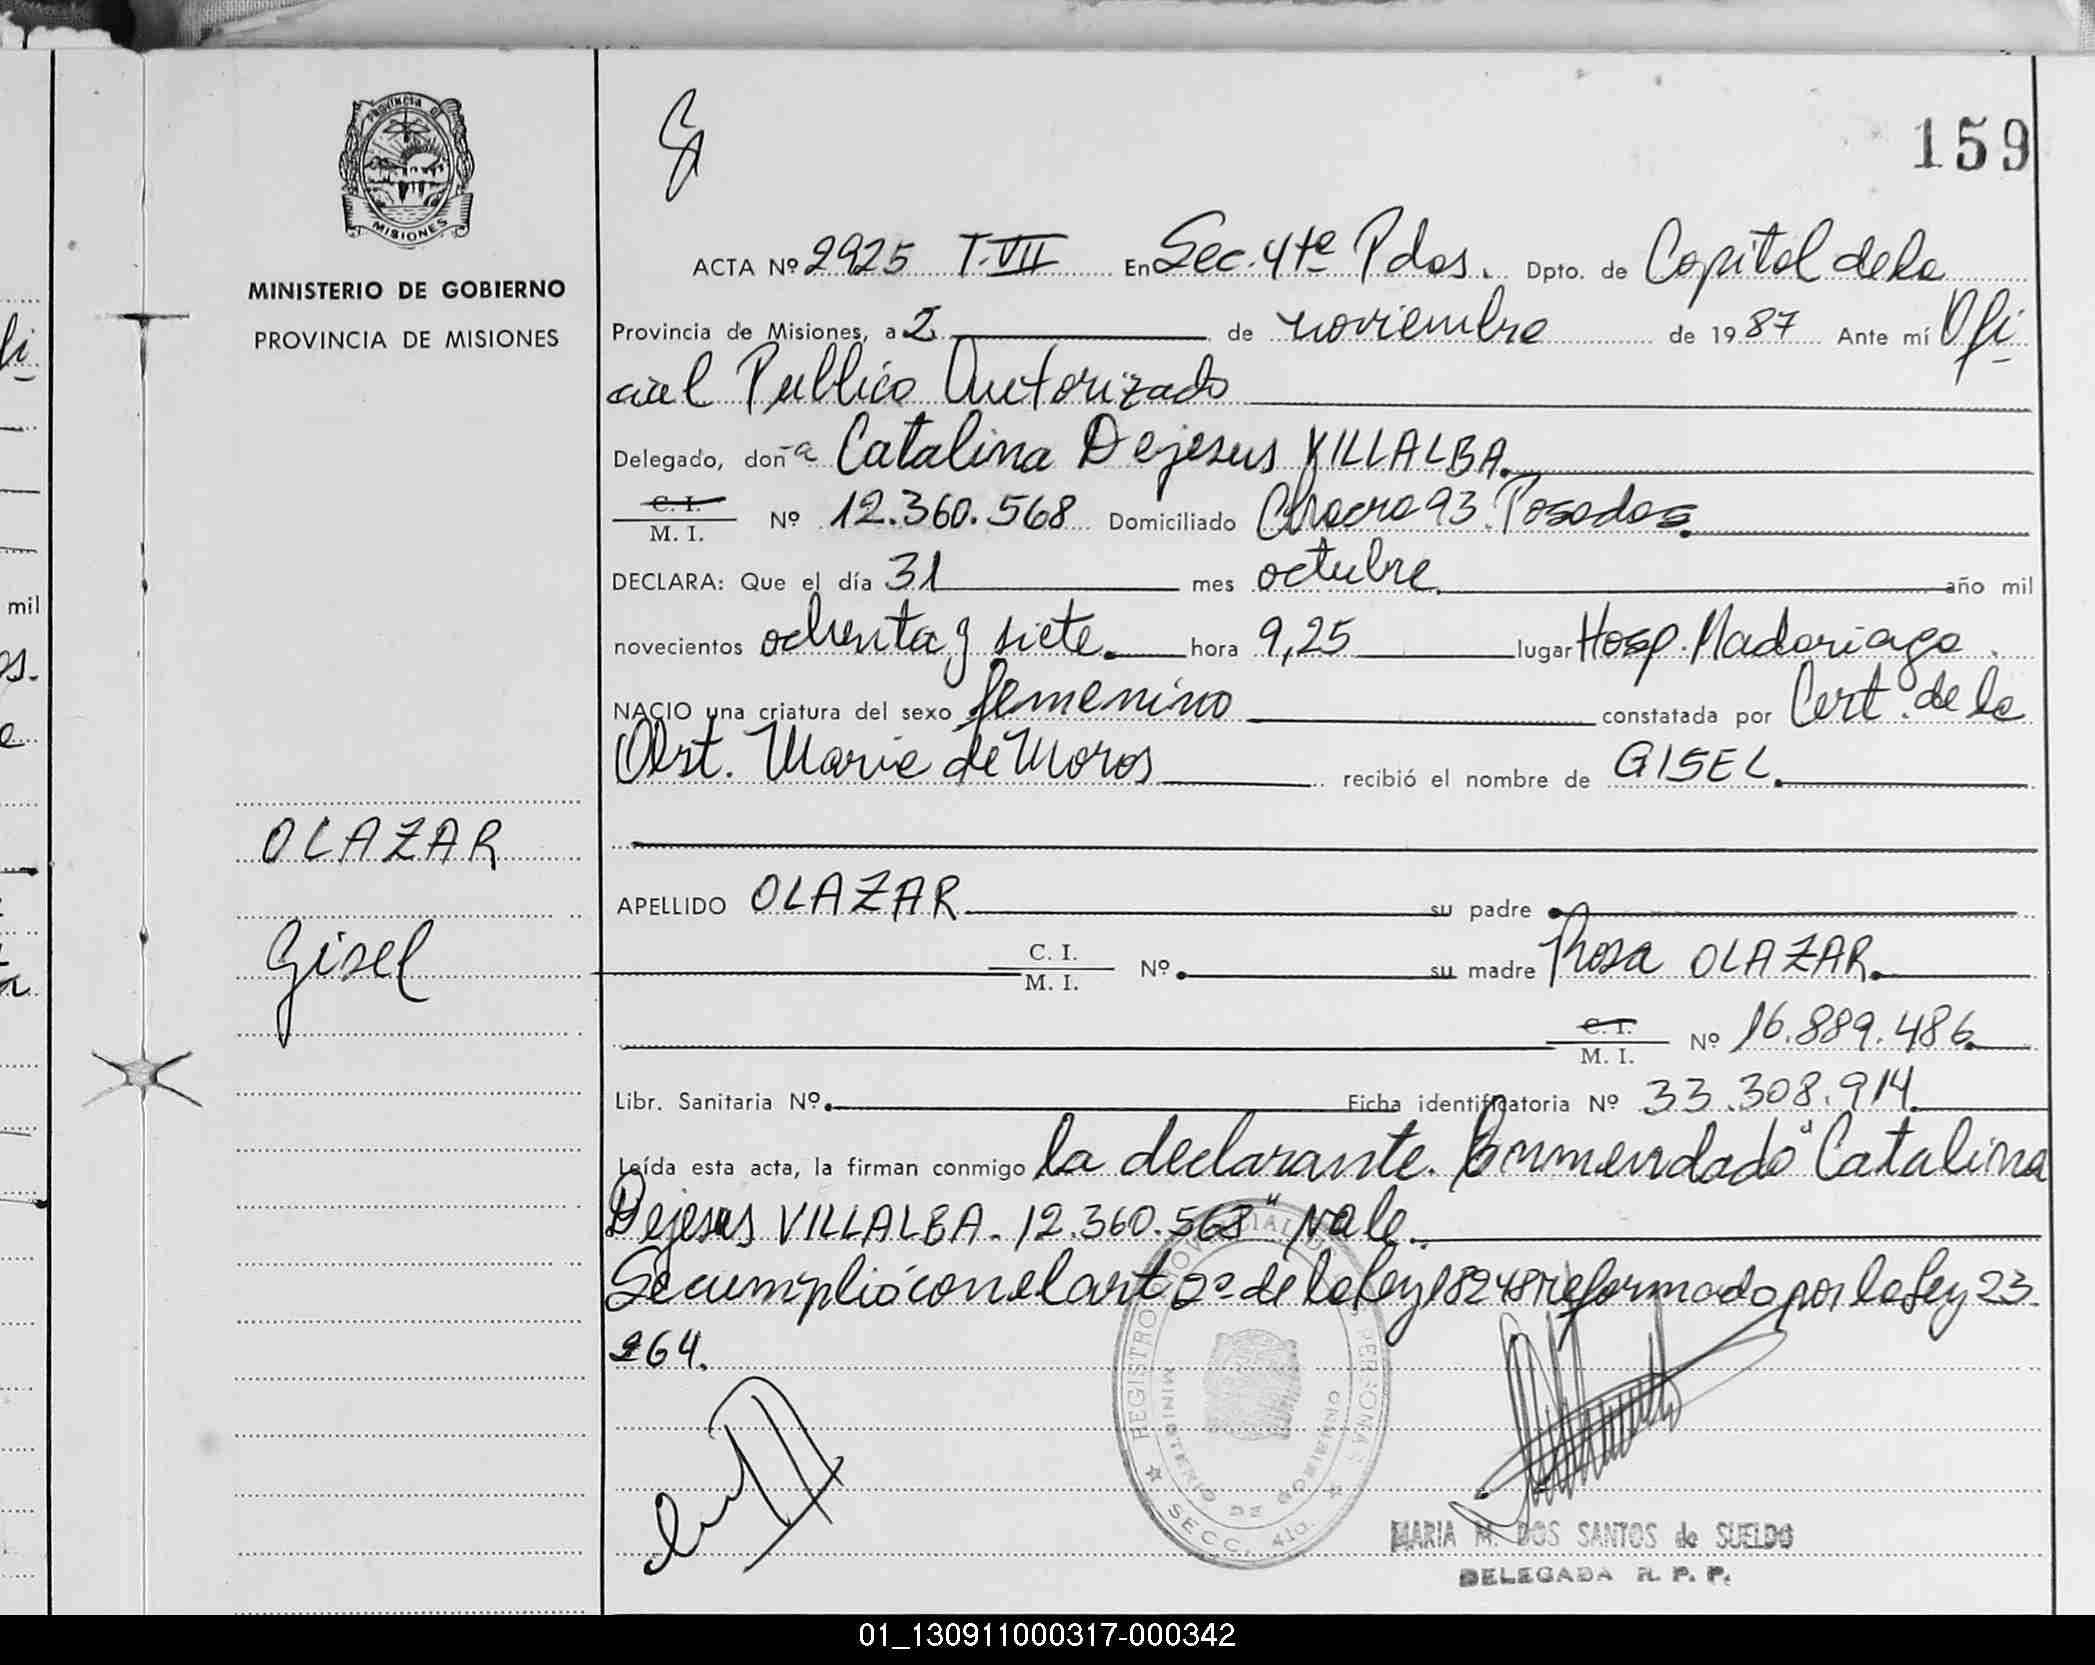 159
PROVINCIA DE
MISIONES
MINISTERIO DE GOBIERNO
PROVINCIA DE MISIONES
OLAZAR
Gisel
ACTA Nº 2925 T.VII En Sec. 4ta Pdas. Dpto. de Capital de la
Provincia de Misiones, a 2 de noviembre de 1987 Ante mí Ofi
cial Publico Autorizado
Delegado, don-a Catalina Dejesus VILLALBA.
C. I.
M. I. Nº 12.360.568 Domiciliado Chacra 93. Posadas.
DECLARA: Que el día 31 mes octubre año mil
novecientos ochenta y siete. hora 9,25 lugar Hosp. Madariaga.
NACIO una criatura del sexo femenino constatada por Cert. de la
Obst. Maria de Moros recibió el nombre de GISEL.
APELLIDO OLAZAR su padre
C. I.
M. I. Nº su madre Rosa OLAZAR.
C. I.
M. I. Nº 16.889.486
Libr. Sanitaria Nº. Ficha identificatoria Nº 33.308.914
Leída esta acta, la firman conmigo la declarante. Enmendado "Catalina
Dejesus VILLALBA. 12.360.568" vale.
Se cumplió con el art 2º de la ley 18248 reformado por la ley 23
264.
REGISTRO PROVINCIAL DE PERSONAS
MINISTERIO DE GOBIERNO
SECC. 4ta.
MARIA M. DOS SANTOS de SUELDO
DELEGADA R. P. P.
01_130911000317-000342